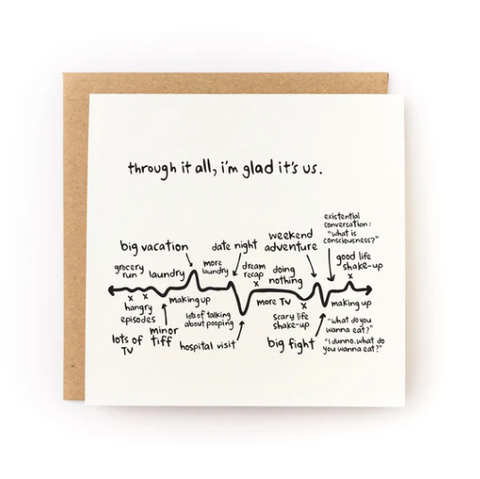 through it all, i'm glad it's us.
existential
conversation:
"what is
consciousness?"
weekend
adventure
big vacation
date night
good life
shake-up
more
laundry
dream
recap
doing
nothing
grocery
run
laundry
x x
x
x
x
making up
more TV
making up
hangry
episodes
lots of talking
about pooping
scary life
shake-up
"what do you
wanna eat?"
minor
tiff
lots of
TV
hospital visit
big fight
"I dunno. what do
you wanna eat?"